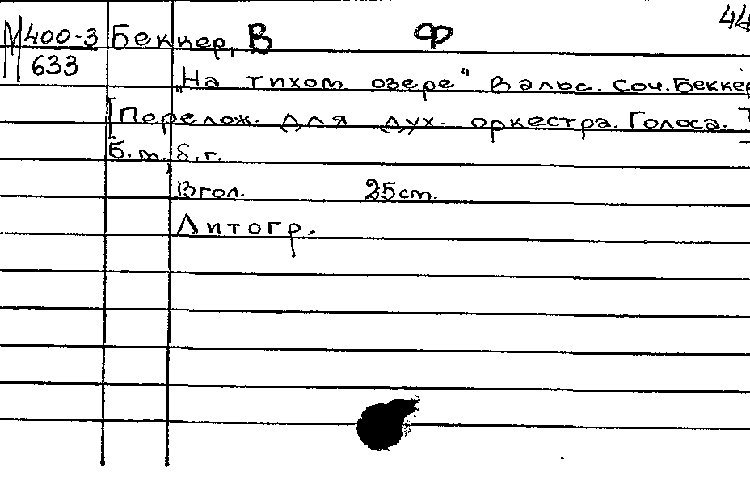 44
М400-3 Беккер, В Ф
633
"На тихом озере" Вальс. Соч. Беккер
[Перелож. для дух. оркестра. Голоса.
Б.м. б.г.
8гол. 25см.
Литогр.